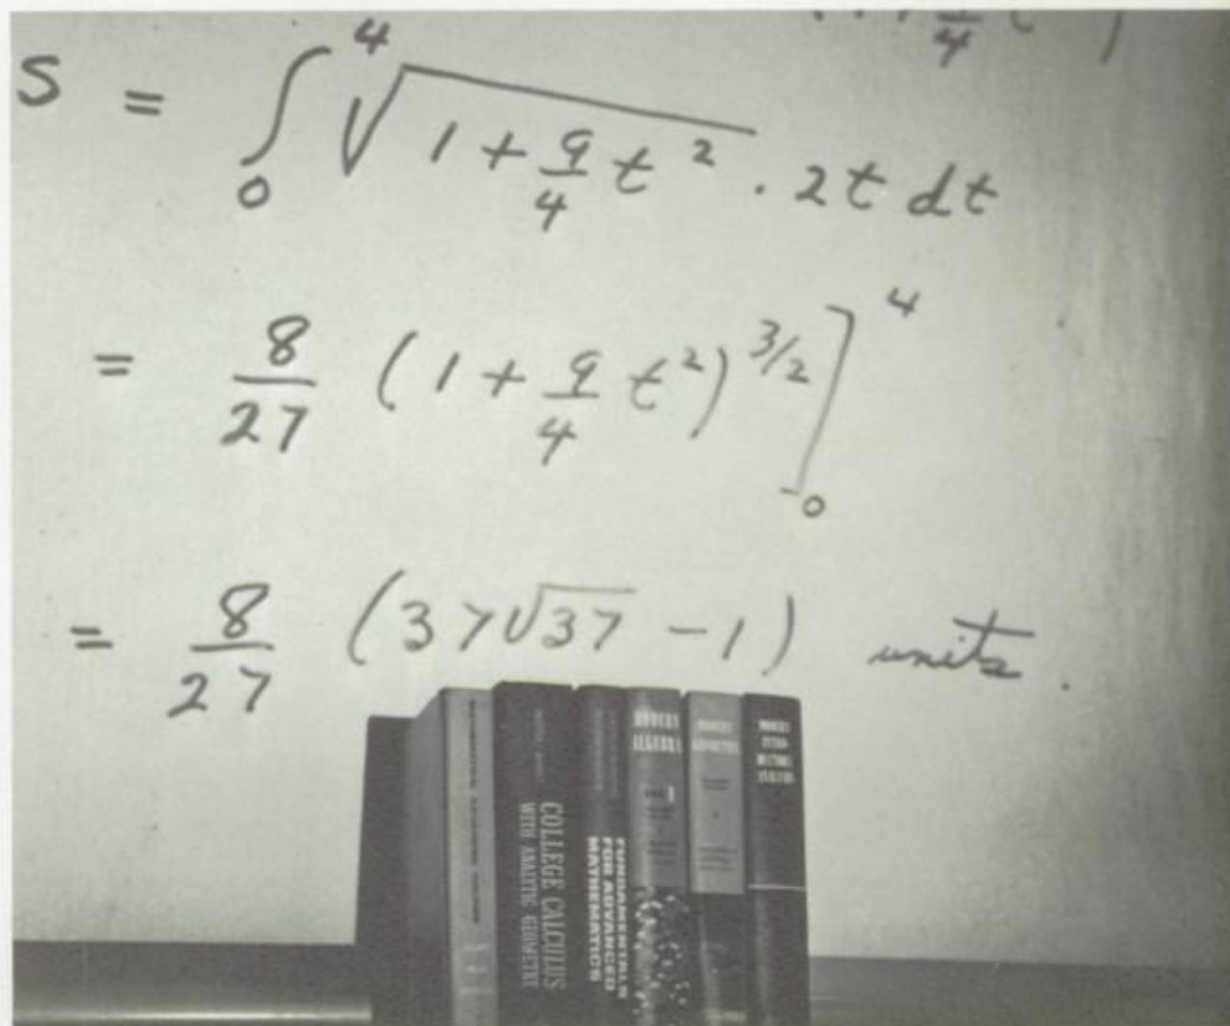 S = ∫₀⁴ √(1 + 9/4 t²) · 2t dt
= 8/27 (1 + 9/4 t²)^(3/2) ]₀⁴
= 8/27 (37√37 − 1) units.
COLLEGE CALCULUS
WITH ANALYTIC GEOMETRY
FUNDAMENTALS
FOR ADVANCED
MATHEMATICS
MODERN
ALGEBRA